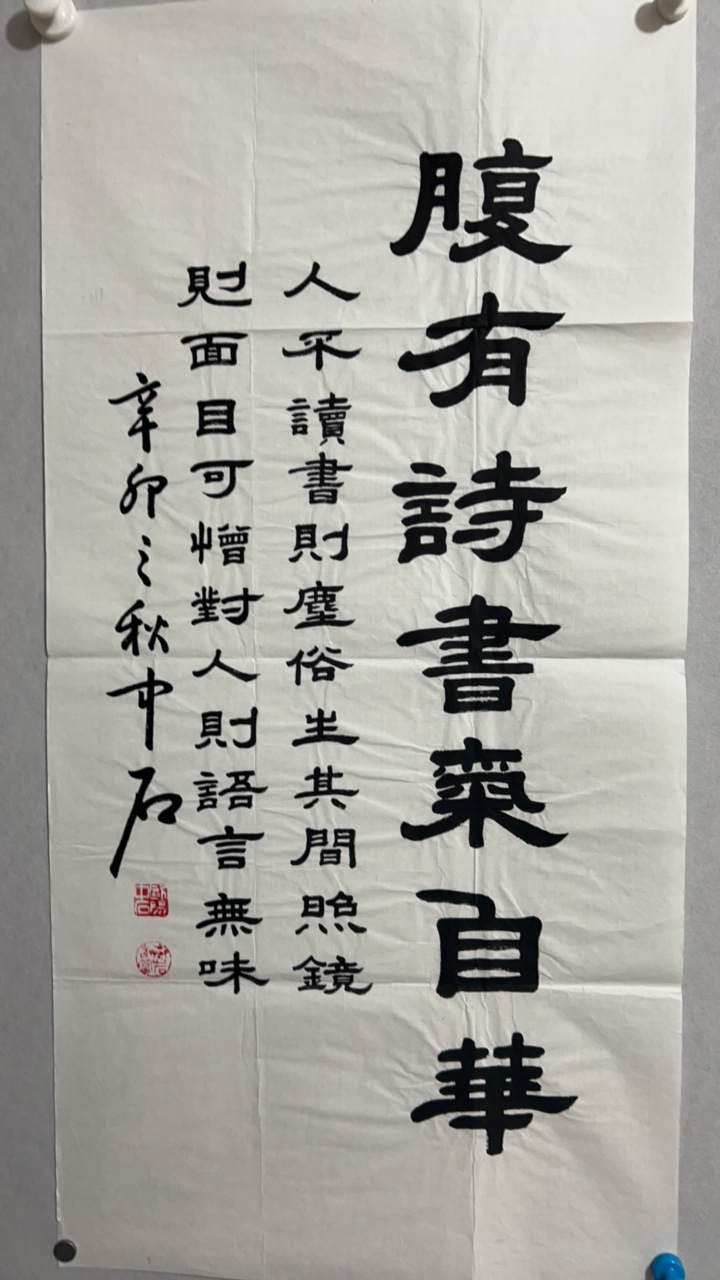 腹有詩書氣自華
人不讀書則塵俗生其間照鏡
則面目可憎對人則語言無味
辛卯之秋中石
歐陽中石